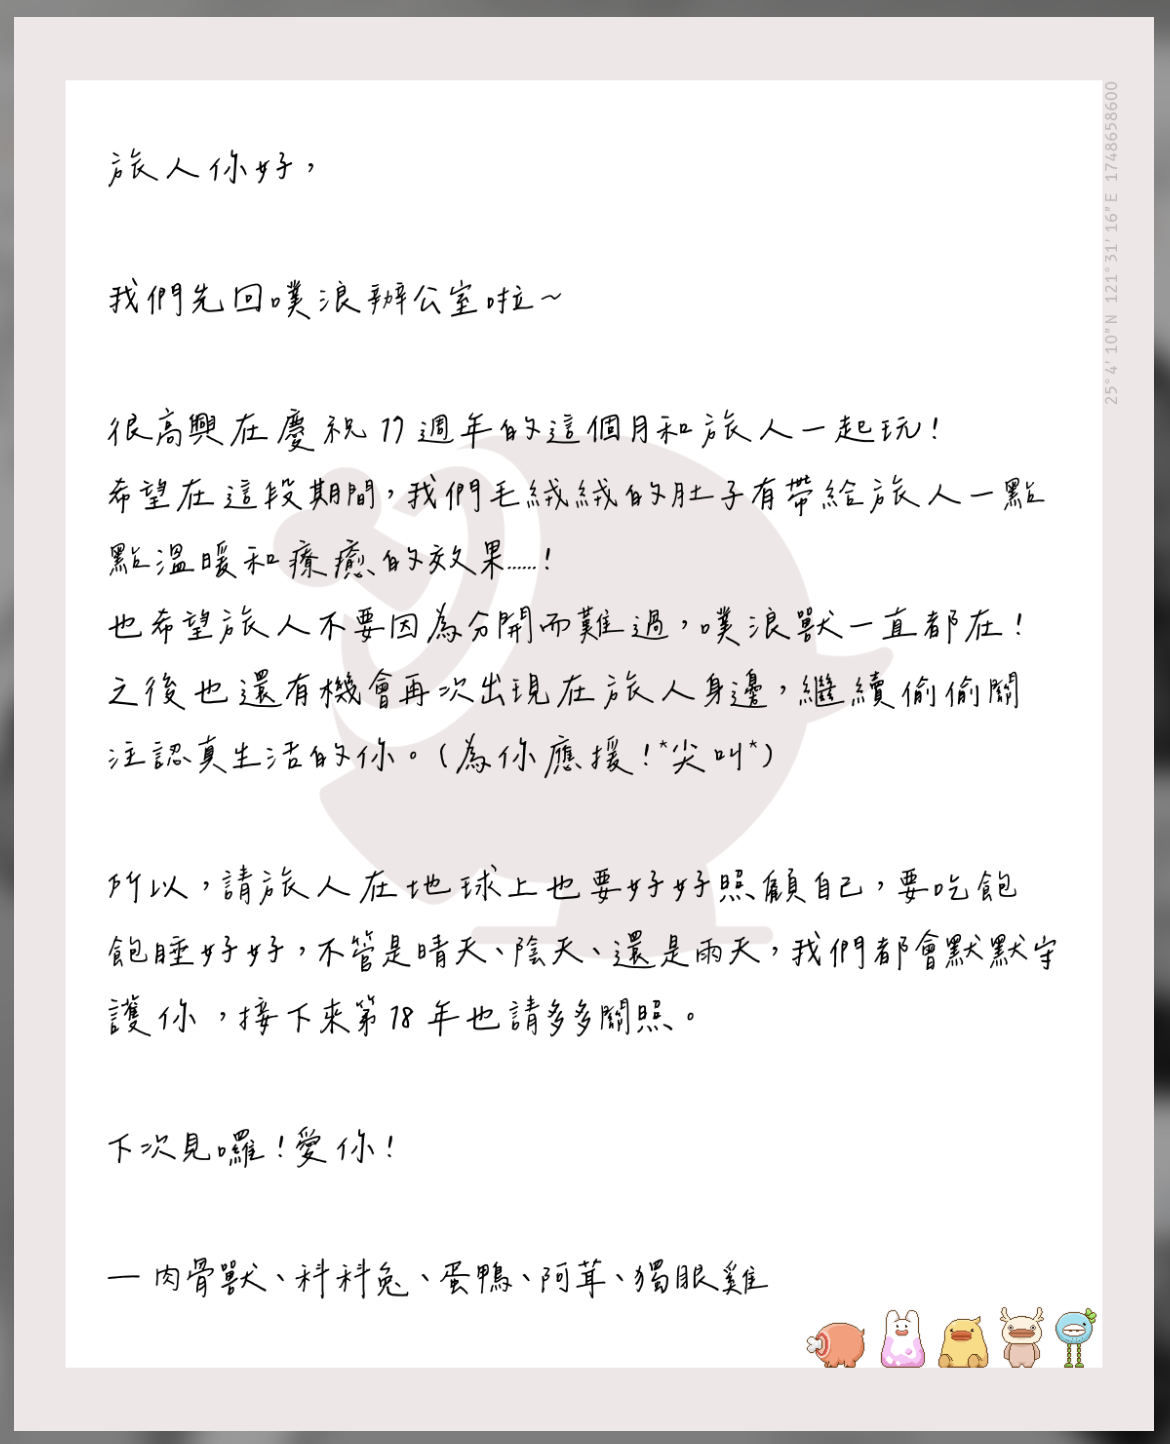 旅人你好，
我們先回噗浪辦公室啦~
很高興在慶祝 17 週年的這個月和旅人一起玩！
希望在這段期間，我們毛絨絨的肚子有帶給旅人一點
點溫暖和療癒的效果......！
也希望旅人不要因為分開而難過，噗浪獸一直都在！
之後也還有機會再次出現在旅人身邊，繼續偷偷關
注認真生活的你。(為你應援！*尖叫*)
所以，請旅人在地球上也要好好照顧自己，要吃飽
飽睡好好，不管是晴天、陰天、還是雨天，我們都會默默守
護你，接下來第 18 年也請多多關照。
下次見囉！愛你！
— 肉骨獸、科科兔、蛋鴨、阿茸、獨眼雞
25°4'10"N 121°31'16"E 1748658600